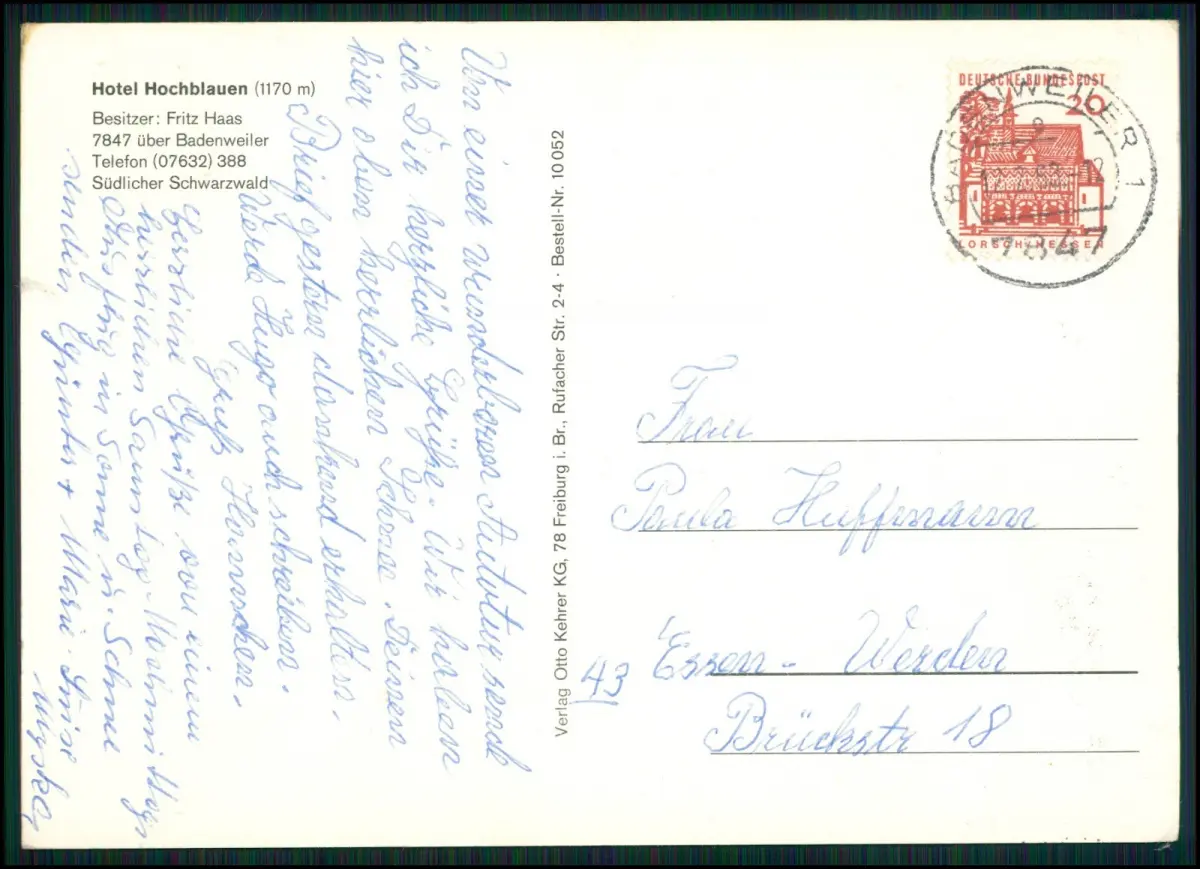 Hotel Hochblauen (1170 m)
Besitzer: Fritz Haas
7847 über Badenweiler
Telefon (07632) 388
Südlicher Schwarzwald
Von einer wunderbaren Autotur sende
ich Dir herzliche Grüße. Wir haben
hier oben herrlichen Schnee. Deinen
Brief gestern dankend erhalten.
Werde Hugo auch schreiben.
Gruß Hannchen.
Herzliche Grüße von einem
herrlichen Samstag-Nachmittags
Ausflug in Sonne u. Schnee
senden Günter + Marie-Luise
Verlag Otto Kehrer KG, 78 Freiburg i. Br., Rufacher Str. 2-4 · Bestell-Nr. 10 052
DEUTSCHE BUNDESPOST
20
LORSCH/HESSEN
BADENWEILER 1
7847
Frau
Paula Huffmann
43 Essen-Werden
Brückstr 18